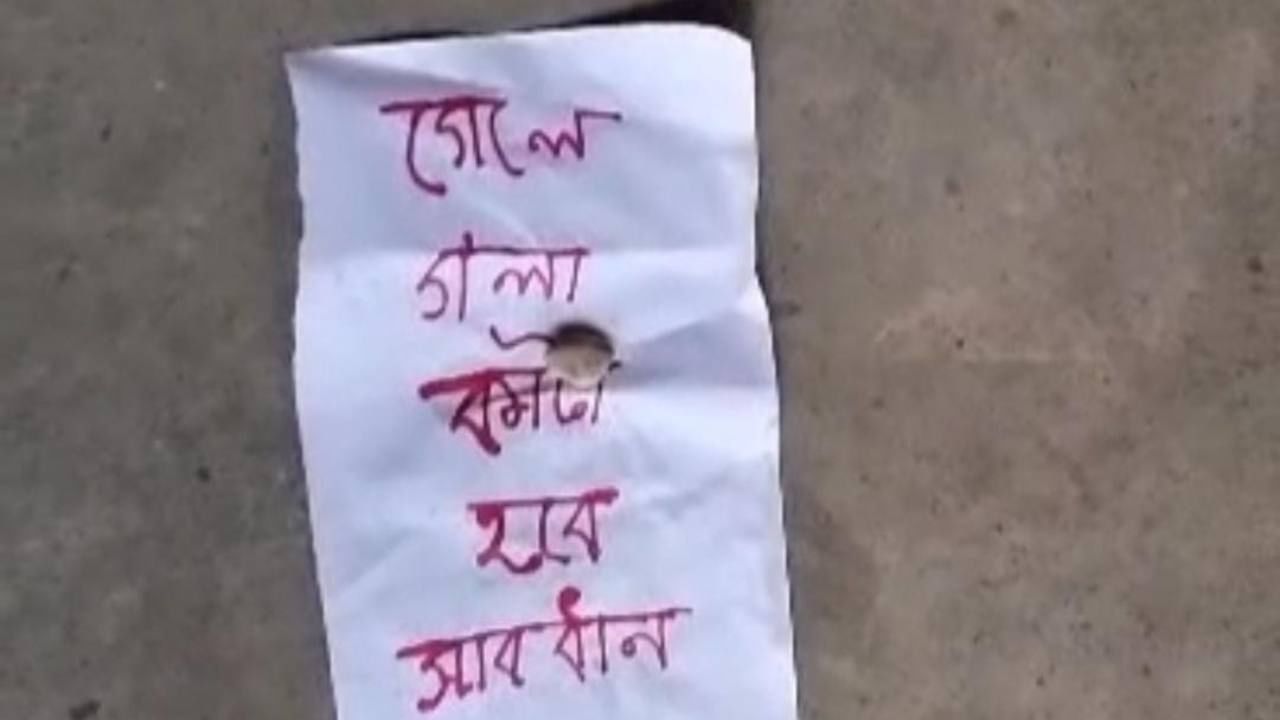 গেলে
গলা
হবে
সাবধান